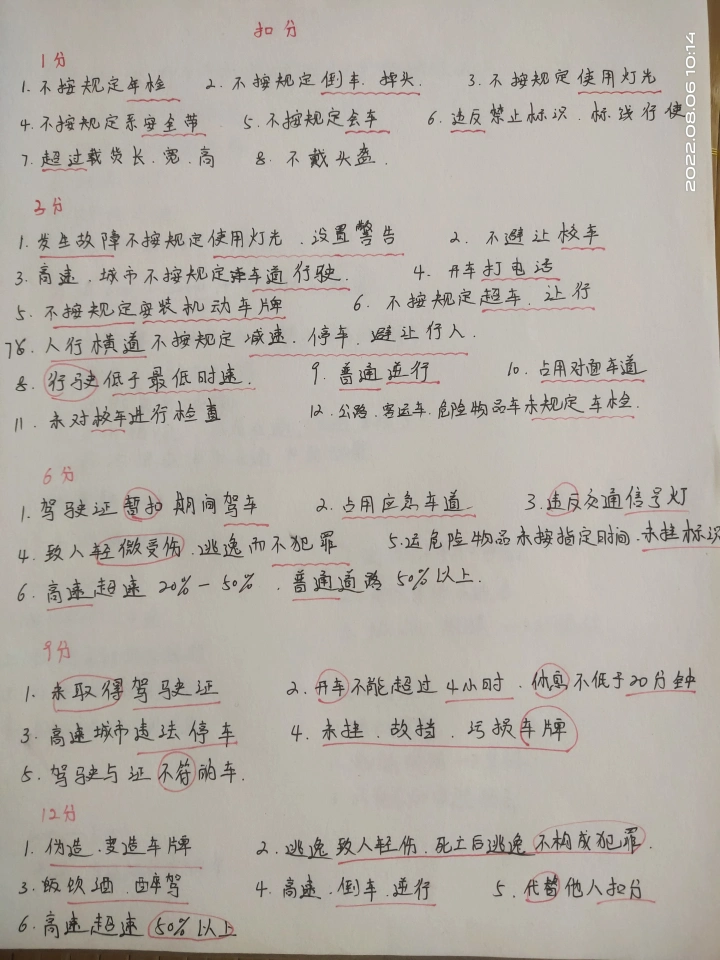 扣分
1分
1. 不按规定年检 2. 不按规定倒车、掉头. 3. 不按规定使用灯光
4. 不按规定系安全带 5. 不按规定会车 6. 违反禁止标识、标线行使
7. 超过载货长、宽、高 8. 不戴头盔.
3分
1. 发生故障不按规定使用灯光、设置警告 2. 不避让校车
3. 高速、城市不按规定车道行驶. 4. 开车打电话
5. 不按规定安装机动车牌 6. 不按规定超车、让行
7. 人行横道不按规定减速、停车、避让行人.
8. 行驶低于最低时速. 9. 普通逆行 10. 占用对面车道
11. 未对校车进行检查 12. 公路、客运车、危险物品车未规定车检.
6分
1. 驾驶证暂扣期间驾车 2. 占用应急车道 3. 违反交通信号灯
4. 致人轻微受伤、逃逸而不犯罪 5. 运危险物品未按指定时间、未挂标识
6. 高速超速20%-50%、普通道路50%以上.
9分
1. 未取得驾驶证 2. 开车不能超过4小时、休息不低于20分钟
3. 高速城市违法停车 4. 未挂、故挡、污损车牌
5. 驾驶与证不符的车.
12分
1. 伪造、变造车牌 2. 逃逸致人轻伤、死亡后逃逸不构成犯罪.
3. 饭饮酒、醉驾 4. 高速、倒车、逆行 5. 代替他人扣分
6. 高速超速50%以上
2022.08.06 10:14